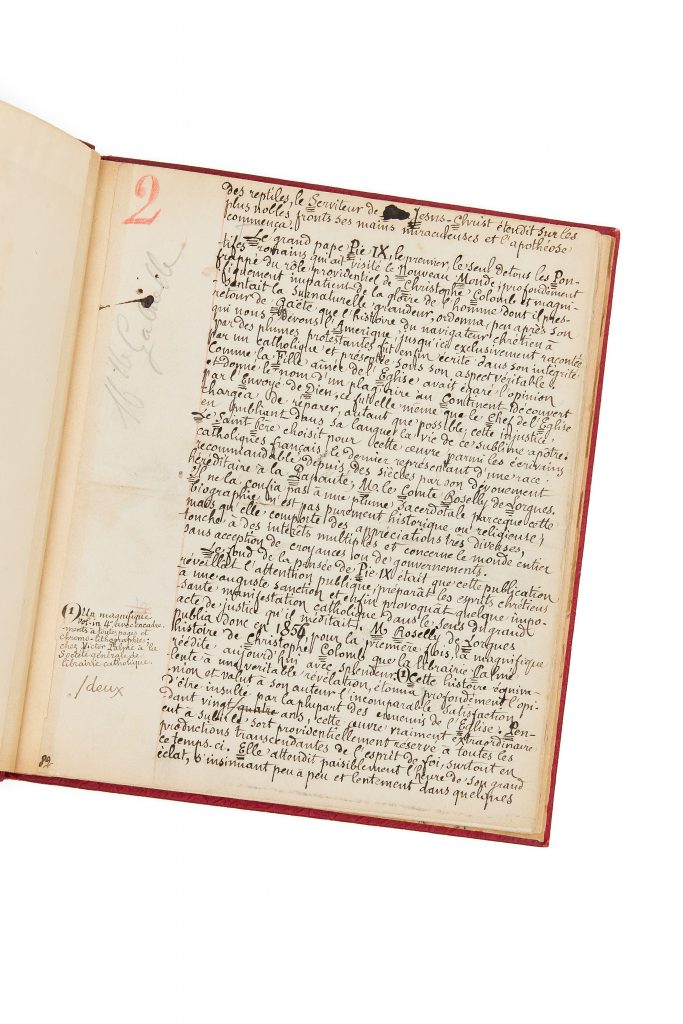 2
Mlle Gabelle
des reptiles, le Serviteur de Jésus-Christ étendit sur les
plus nobles fronts ses mains miraculeuses et l'apothéose
commença.
Le grand pape Pie IX, le premier, le seul de tous les Pon-
tifes romains qui ait visité le Nouveau Monde, profondément
frappé du rôle providentiel de Christophe Colomb et magni-
fiquement impatient de la gloire de l'homme dont il pres-
sentait la surnaturelle grandeur, ordonna, peu après son
retour de Gaëte que l'histoire du navigateur chrétien à
qui nous devons l'Amérique, jusqu'ici exclusivement racontée
par des plumes protestantes fût enfin écrite dans son intégrité
par un catholique et présentée sous son aspect véritable.
Comme la Fille aînée de l'Église avait égaré l'opinion
et donné le nom d'un plagiaire au Continent découvert
par l'Envoyé de Dieu, ce fut elle même que le Chef de l'Église
chargea de réparer, autant que possible, cette injustice,
en publiant dans sa langue la vie de ce sublime apôtre.
Le Saint Père choisit pour cette œuvre parmi les écrivains
catholiques français, le dernier représentant d'une race
recommandable depuis des siècles par son dévouement
héréditaire à la Papauté, M. le Comte Roselly de Lorgues.
Il ne la confia pas à une plume sacerdotale parce que cette
biographie n'est pas purement historique ou religieuse,
mais qu'elle comporte des appréciations très diverses,
touche à des intérêts multiples et concerne le monde entier
sans acception de croyances ou de gouvernements.
Le fond de la pensée de Pie IX était que cette publication
réveillât l'attention publique, préparât les esprits chrétiens
à une auguste sanction et enfin provoquât quelque impo-
sante manifestation catholique dans le sens du grand
acte de justice qu'il méditait. M. Roselly de Lorgues
publia donc en 1856, pour la première fois, la magnifique
histoire de Christophe Colomb que la librairie Palmé
réédite aujourd'hui avec splendeur (1) Cette histoire équiva-
lente à une véritable révélation, étonna profondément l'opi-
nion et valut à son auteur l'incomparable satisfaction
d'être insulté par la plupart des ennemis de l'Église. Pen-
dant vingt quatre ans, cette œuvre vraiment extraordinaire
eut à subir le sort providentiellement réservé à toutes les
productions transcendantes de l'esprit de foi, surtout en
ce temps-ci. Elle attendit paisiblement l'heure de son grand
éclat, s'insinuant peu à peu et lentement dans quelques
(1) Un magnifique
vol. in 4° avec encadre-
ments à toutes pages et
chromo-lithographies;
chez Victor Palmé à la
Société générale de
librairie catholique.
/deux
82